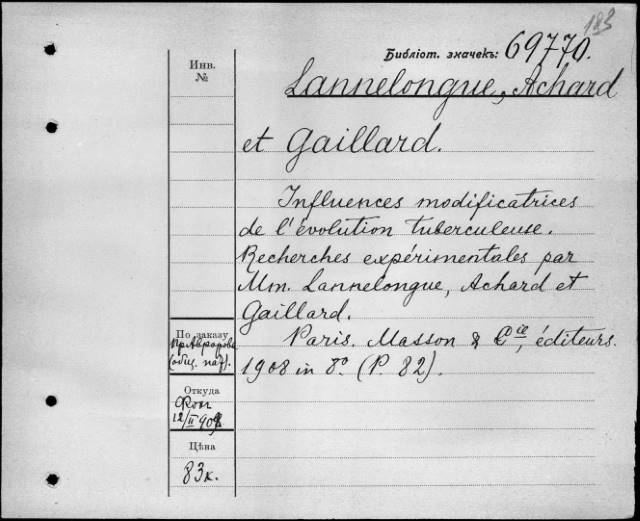 183
Библіот. значекъ: 69770.
Инв.
№
Lannelongue, Achard
et Gaillard.
Influences modificatrices
de l'évolution tuberculeuse.
Recherches expérimentales par
Mm. Lannelongue, Achard et
Gaillard.
Paris. Masson & Cie, éditeurs.
1908 in 8º (P. 82).
По заказу
Пр. Авророва
(общ. пат).
Откуда
Фок
12/II 909
Цѣна
83к.